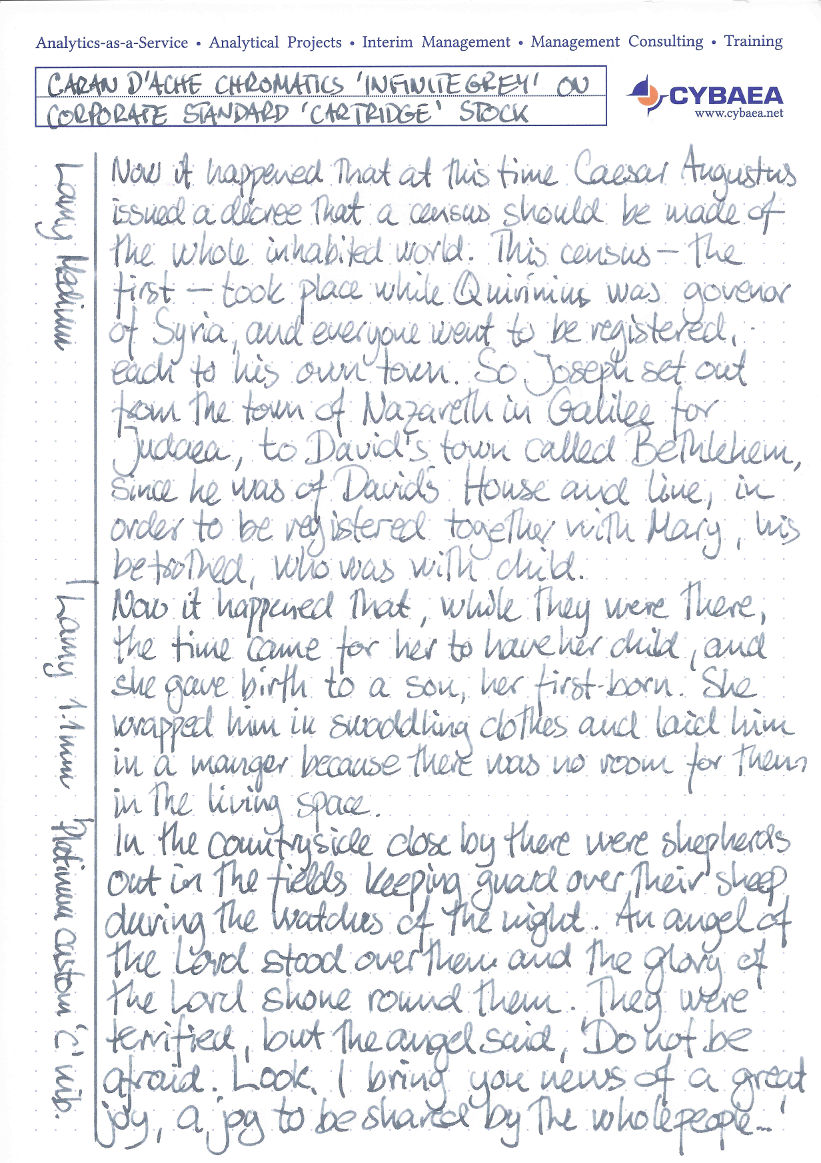 Analytics-as-a-Service • Analytical Projects • Interim Management • Management Consulting • Training
CARAN D'ACHE CHROMATICS 'INFINITE GREY' ON
CORPORATE STANDARD 'CARTRIDGE' STOCK
CYBAEA
www.cybaea.net
Lamy Medium
Now it happened that at this time Caesar Augustus
issued a decree that a census should be made of
the whole inhabited world. This census – the
first – took place while Quirinius was govenor
of Syria, and everyone went to be registered,
each to his own town. So Joseph set out
from the town of Nazareth in Galilee for
Judaea, to David's town called Bethlehem,
since he was of David's House and line, in
order to be registered together with Mary, his
betrothed, who was with child.
Lamy 1.1mm
Now it happened that, while they were there,
the time came for her to have her child, and
she gave birth to a son, her first-born. She
wrapped him in swaddling clothes and laid him
in a manger because there was no room for them
in the living space.
Platinum custom 'C' nib.
In the countryside close by there were shepherds
out in the fields keeping guard over their sheep
during the watches of the night. An angel of
the Lord stood over them and the glory of
the Lord shone round them. They were
terrified, but the angel said, 'Do not be
afraid. Look, I bring you news of a great
joy, a joy to be shared by the whole people...'